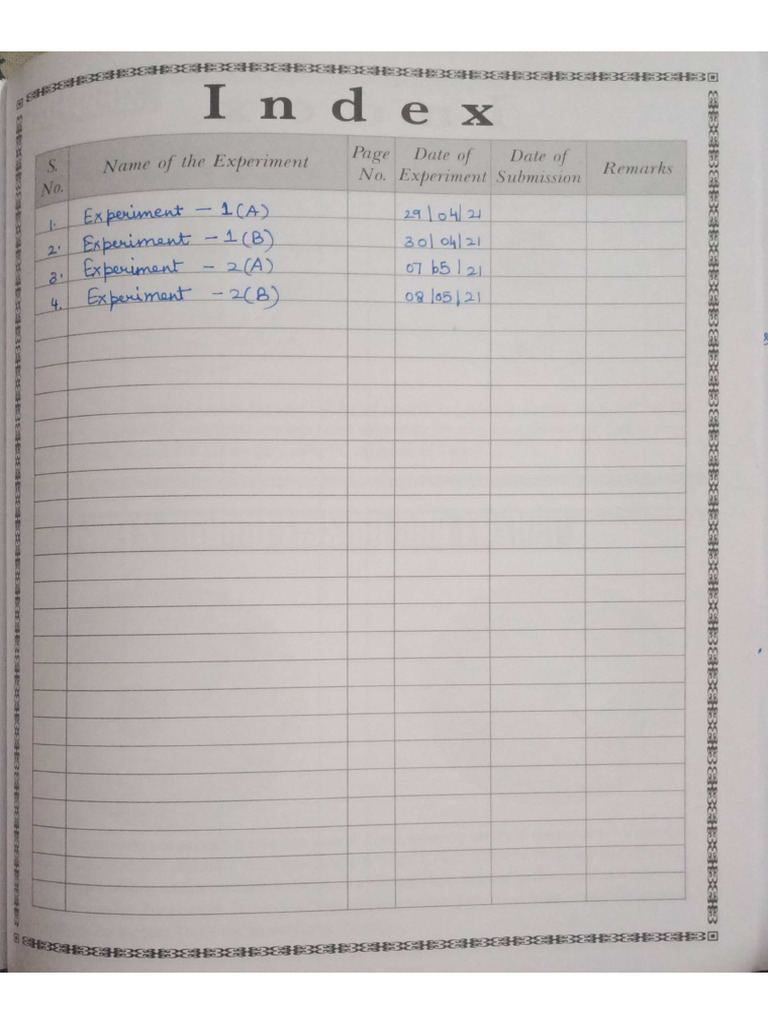 Index
S. No. Name of the Experiment Page No. Date of Experiment Date of Submission Remarks
1. Experiment - 1(A) 29/04/21
2. Experiment - 1(B) 30/04/21
3. Experiment - 2(A) 07/05/21
4. Experiment - 2(B) 08/05/21